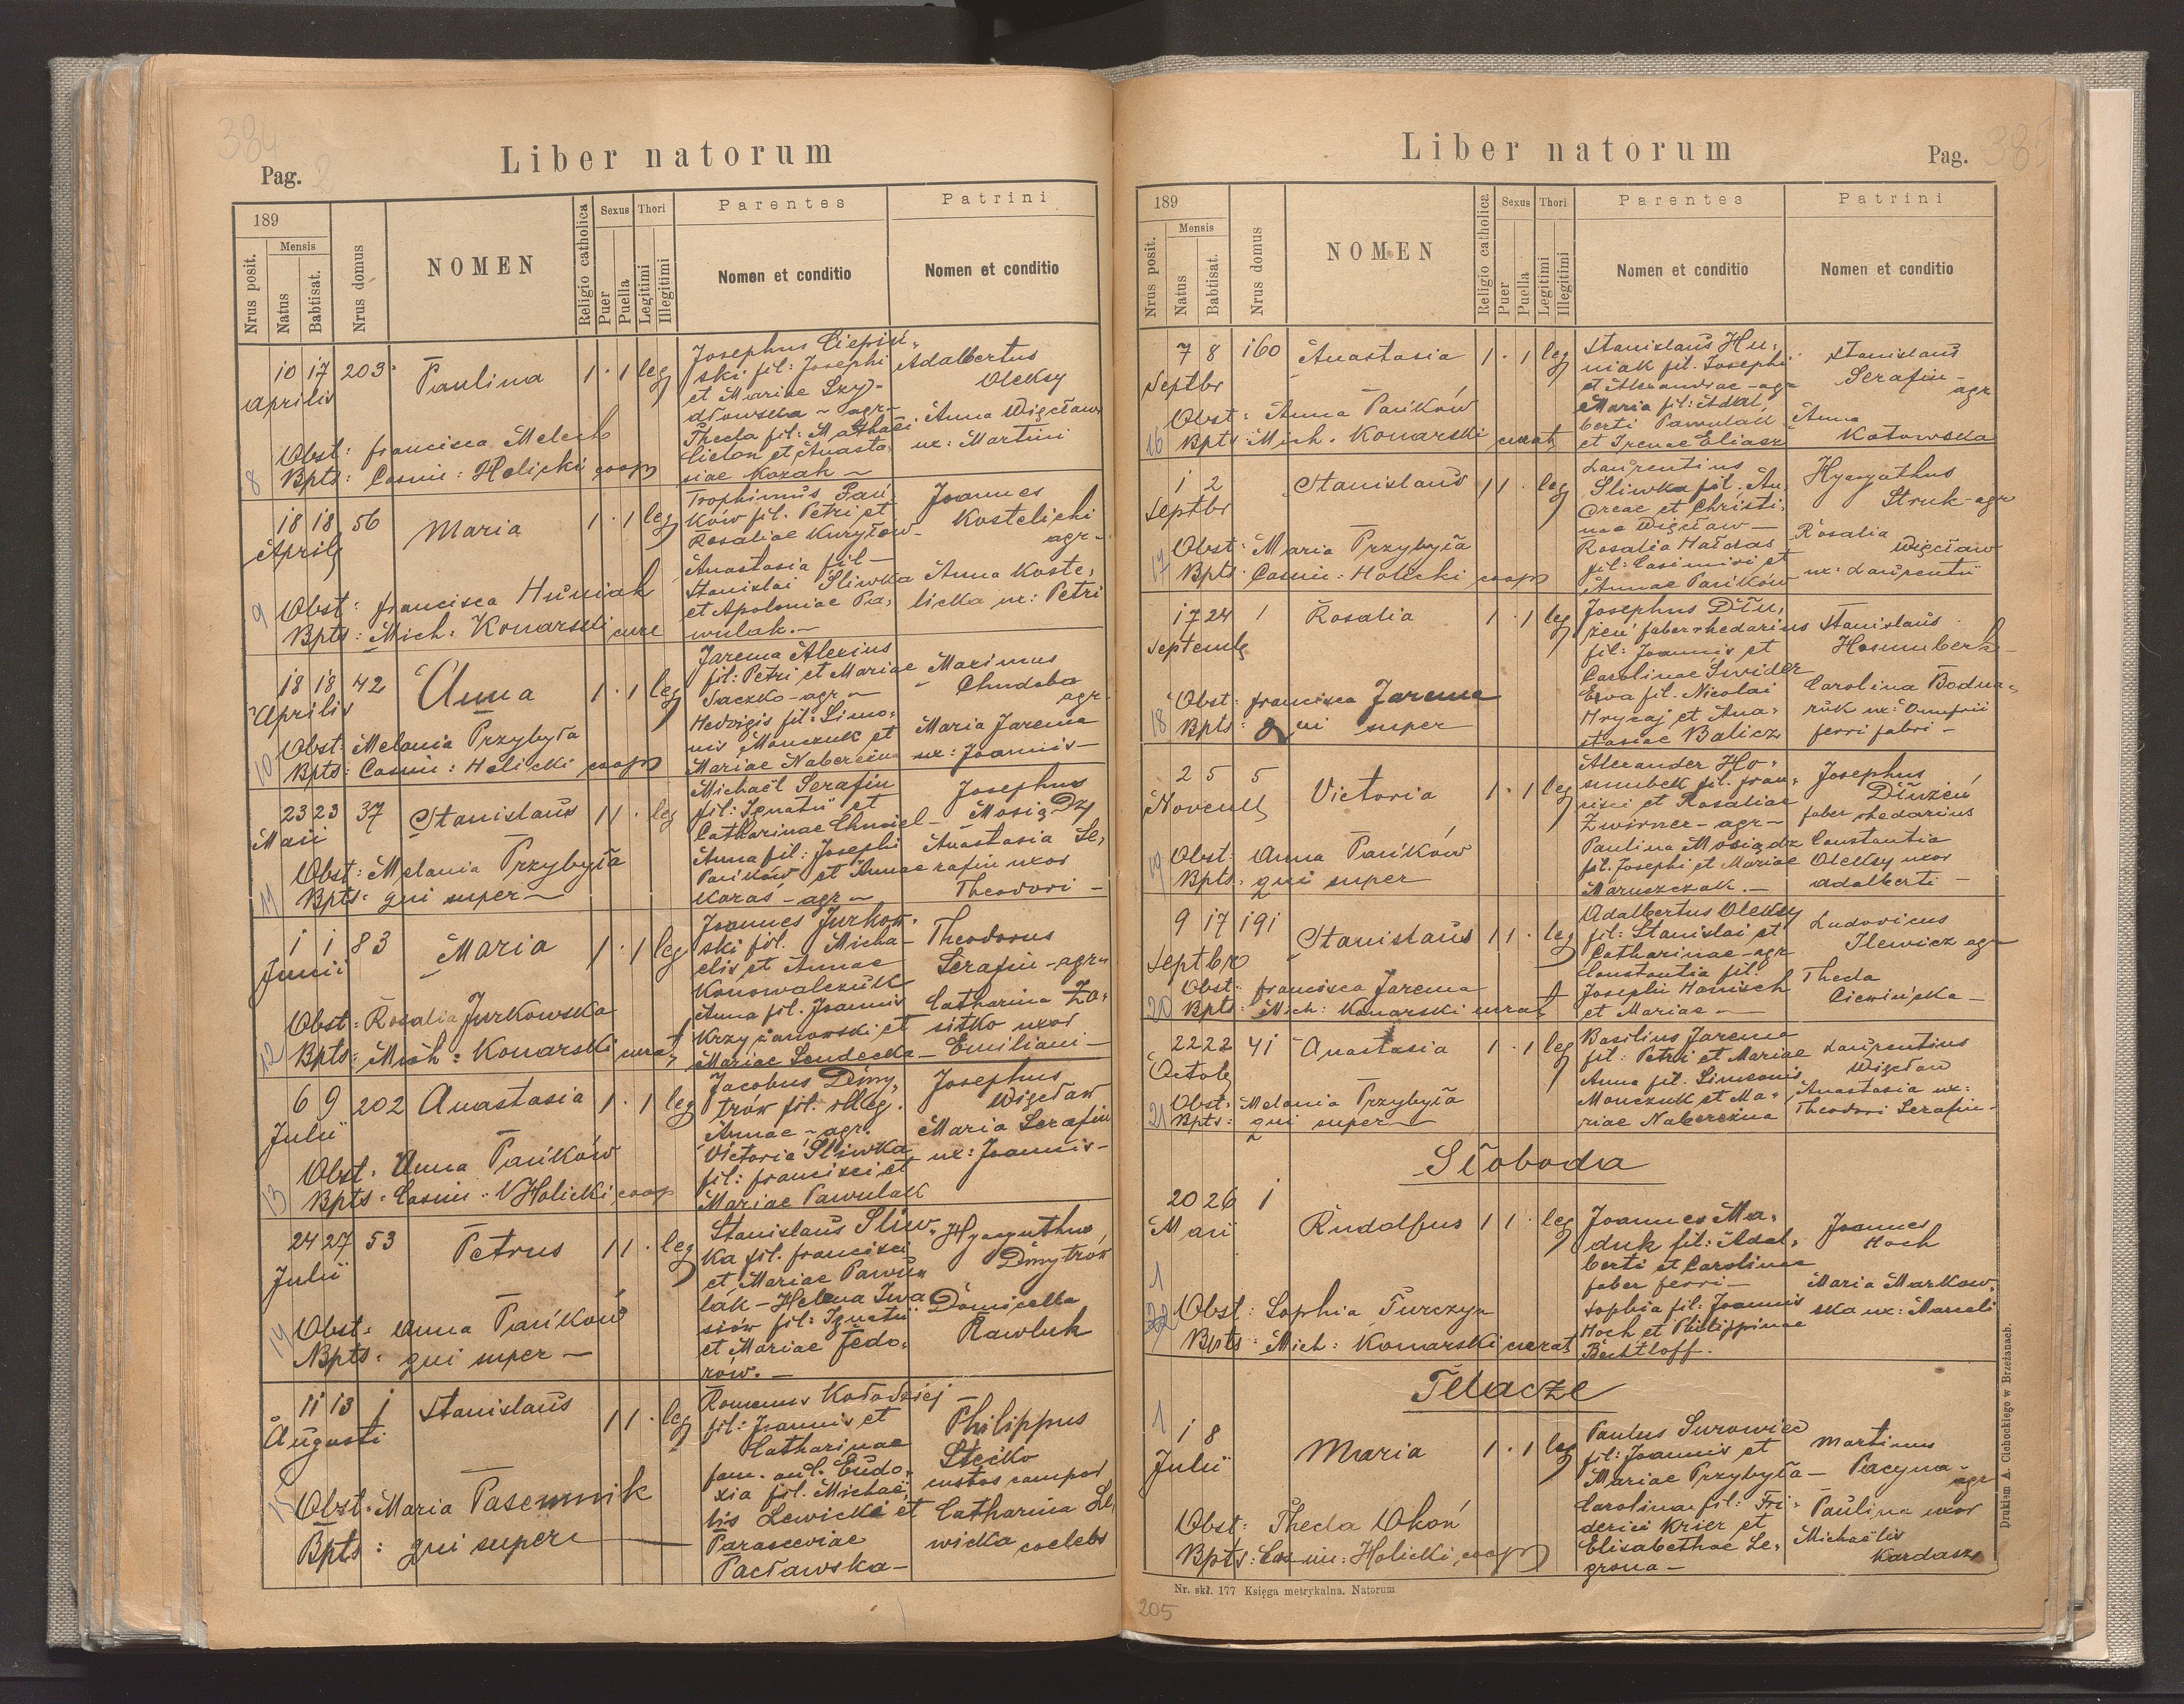 384
Pag. 2
Liber natorum
189
Nrus posit.
Mensis
Natus
Babtisat.
Nrus domus
NOMEN
Religio catholica
Sexus
Puer
Puella
Thori
Legitimi
Illegitimi
Parentes
Nomen et conditio
Patrini
Nomen et conditio
10 17 203
Aprilis
Paulina
1 · 1 leg
Josephus Ciepiń-
ski fil: Josephi
et Mariae Szy-
dłowska - agr -
Thecla fil: Mathaei
Cielon et Anasta-
siae Kozak -
Adalbertus
Oleksy
Anna Więcław
ux: Martini
Obst: Francisca Melech
8 Bpts: Casim: Holicki coop
18 18 56
Aprilis
Maria
1 · 1 leg
Trophimus Pań-
ków fil. Petri et
Rosaliae Kuryłow-
Anastasia fil -
Stanislai Śliwka
et Apoloniae Pa-
wulak. -
Joannes
Kostelicki
agr -
Anna Koste-
licka ux: Petri
9 Obst: Francisca Huniak
Bpts: Mich: Konarski cure
18 18 42
Aprilis
Anna
1 · 1 leg
Jarema Alexius
fil: Petri et Mariae
Saczko - agr -
Hedvigis fil: Simo-
nis Monczuk et
Mariae Nabereżna
Maximus
Chudoba
agr -
Maria Jarema
ux: Joannis -
Obst: Melania Przybyła
10 Bpts: Casim: Holicki coop
23 23 37
Maii
Stanislaus
1 1 · leg
Michaël Serafin
fil: Ignatii et
Catharinae Chmiel -
Anna fil: Josephi
Pańków et Annae
Karaś - agr -
Josephus
Mosiądz
Anastasia Se-
rafin uxor
Theodori -
Obst: Melania Przybyła
11 Bpts: qui super -
1 1 83
Junii
Maria
1 · 1 leg
Joannes Jurkow-
ski fil. Micha-
elis et Annae
Konowalczuk
Anna fil. Joannis
Krzyżanowski et
Mariae Sendecka -
Theodorus
Serafin - agr -
Catharina Za-
sitko uxor
Emiliani -
Obst: Rosalia Jurkowska
12 Bpts: Mich: Konarski curat
6 9 202
Julii
Anastasia
1 · 1 leg
Jacobus Dmy-
trów fil. illeg.
Annae - agr.
Victoria Śliwka
fil: Francisci et
Mariae Pawulak
Josephus
Więcław
Maria Serafin
ux: Joannis -
Obst: Anna Pańków
13 Bpts: Casim: Holicki coop
24 27 53
Julii
Petrus
1 1 · leg
Stanislaus Śliw-
ka fil. Francisci
et Mariae Pawu-
lak - Helena Iwa
siów fil: Ignatii
et Mariae Fedo-
rów. -
Hyacynthus
Dmytrów
Domicella
Rawluk
14 Obst: Anna Pańków
Bpts: qui super -
11 13 1
Augusti
Stanislaus
1 1 · leg
Romanus Kołodziej
fil: Joannis et
Catharinae
fam. aul. Eudo-
xia fil. Michaë-
lis Lewicki et
Parasceviae
Pacławska -
Philippus
Stećko
custos campor
Catharina Le-
wicka coelebs
15 Obst: Maria Pasemnik
Bpts: qui super
385
Liber natorum
Pag.
189
Nrus posit.
Mensis
Natus
Babtisat.
Nrus domus
NOMEN
Religio catholica
Sexus
Puer
Puella
Thori
Legitimi
Illegitimi
Parentes
Nomen et conditio
Patrini
Nomen et conditio
7 8 160
Septbr
Anastasia
1 · 1 leg
Stanislaus Hu-
niak fil. Josephi
et Alexandrae - agr
Maria fil: Adal-
berti Pawulak
et Irenae Eliasz
Stanislaus
Serafin -
agr
Anna
Kotowska
Obst: Anna Pańków
16 Bpts: Mich. Konarski curat
1 2
Septbr
Stanislaus
1 1 · leg
Laurentius
Śliwka fil. An-
dreae et Christi-
nae Więcław -
Rosalia Hałdas
fil: Casimiri et
Annae Pańków
Hyacynthus
Struk - agr
Rosalia
Więcław
ux: Laurentii
Obst: Maria Przybyła
17 Bpts: Casim: Holicki coop
17 24 1
Septemb
Rosalia
1 · 1 leg
Josephus Dłu-
żeń faber rhedarius
fil: Joannis et
Carolinae Swider
Ewa fil. Nicolai
Hrycaj et Ana-
stasiae Balicz
Stanislaus
Hosumbek -
Carolina Bodna-
ruk ux: Onufrii
ferri fabri -
Obst: Francisca Jarema
18 Bpts: qui super
2 5 5
Novemb
Victoria
1 · 1 leg
Alexander Ho-
sumbek fil. Fran-
cisci et Rosaliae
Zwirner - agr -
Paulina Mosiądz
fil. Josephi et Mariae
Maruszczak. -
Josephus
Dłużeń
faber rhedarius
Constantia
Oleksy uxor
Adalberti -
Obst: Anna Pańków
19 Bpts: qui super
9 17 191
Septbr
Stanislaus
1 1 · leg
Adalbertus Oleksy
fil: Stanislai et
Catharinae - agr
Constantia fil.
Josephi Hanisch
et Mariae -
Ludovicus
Ilewicz agr
Thecla
Ciewińska -
Obst: Francisca Jarema
20 Bpts: Mich: Konarski curat
22 22 41
Octob
Anastasia
1 · 1 leg
Basilius Jarema
fil: Petri et Mariae
Anna fil. Simeonis
Monczuk et Ma-
riae Nabereżna
Laurentius
Więcław
Anastasia ux:
Theodori Serafin -
Obst: Melania Przybyła
21 Bpts: qui super
Słoboda
20 26 1
Maii
Rudolfus
1 1 · leg
Joannes Ma-
duk fil: Adal-
berti et Carolinae
faber ferri -
Sophia fil: Joannis
Hoch et Philippinae
Bechtloff.
Joannes
Hoch
Maria Markow-
ska ux: Marceli
1
22 Obst: Sophia Turczyn
Bpts: Mich: Konarski curat
Telacze
1
1 8
Julii
Maria
1 · 1 leg
Paulus Surowiec
fil: Joannis et
Mariae Przybyła -
Carolina fil: Fri-
derici Krier et
Elisabethae Le-
grona -
Martinus
Pacyna -
agr
Paulina uxor
Michaëlis
Kardasz
Obst: Thecla Okoń
Bpts: Casim: Holicki coop
Nr. skł. 177 Księga metrykalna. Natorum
Drukiem A. Cichockiego w Brzeżanach.
205